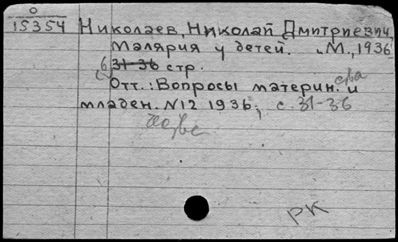 0
15354
Николаев, Николай Дмитриевич,
Малярия у детей. М., 1936
6 31-36 стр.
Отт.: Вопросы материн. ства и
младен. N12 1936, с. 31-36
РК